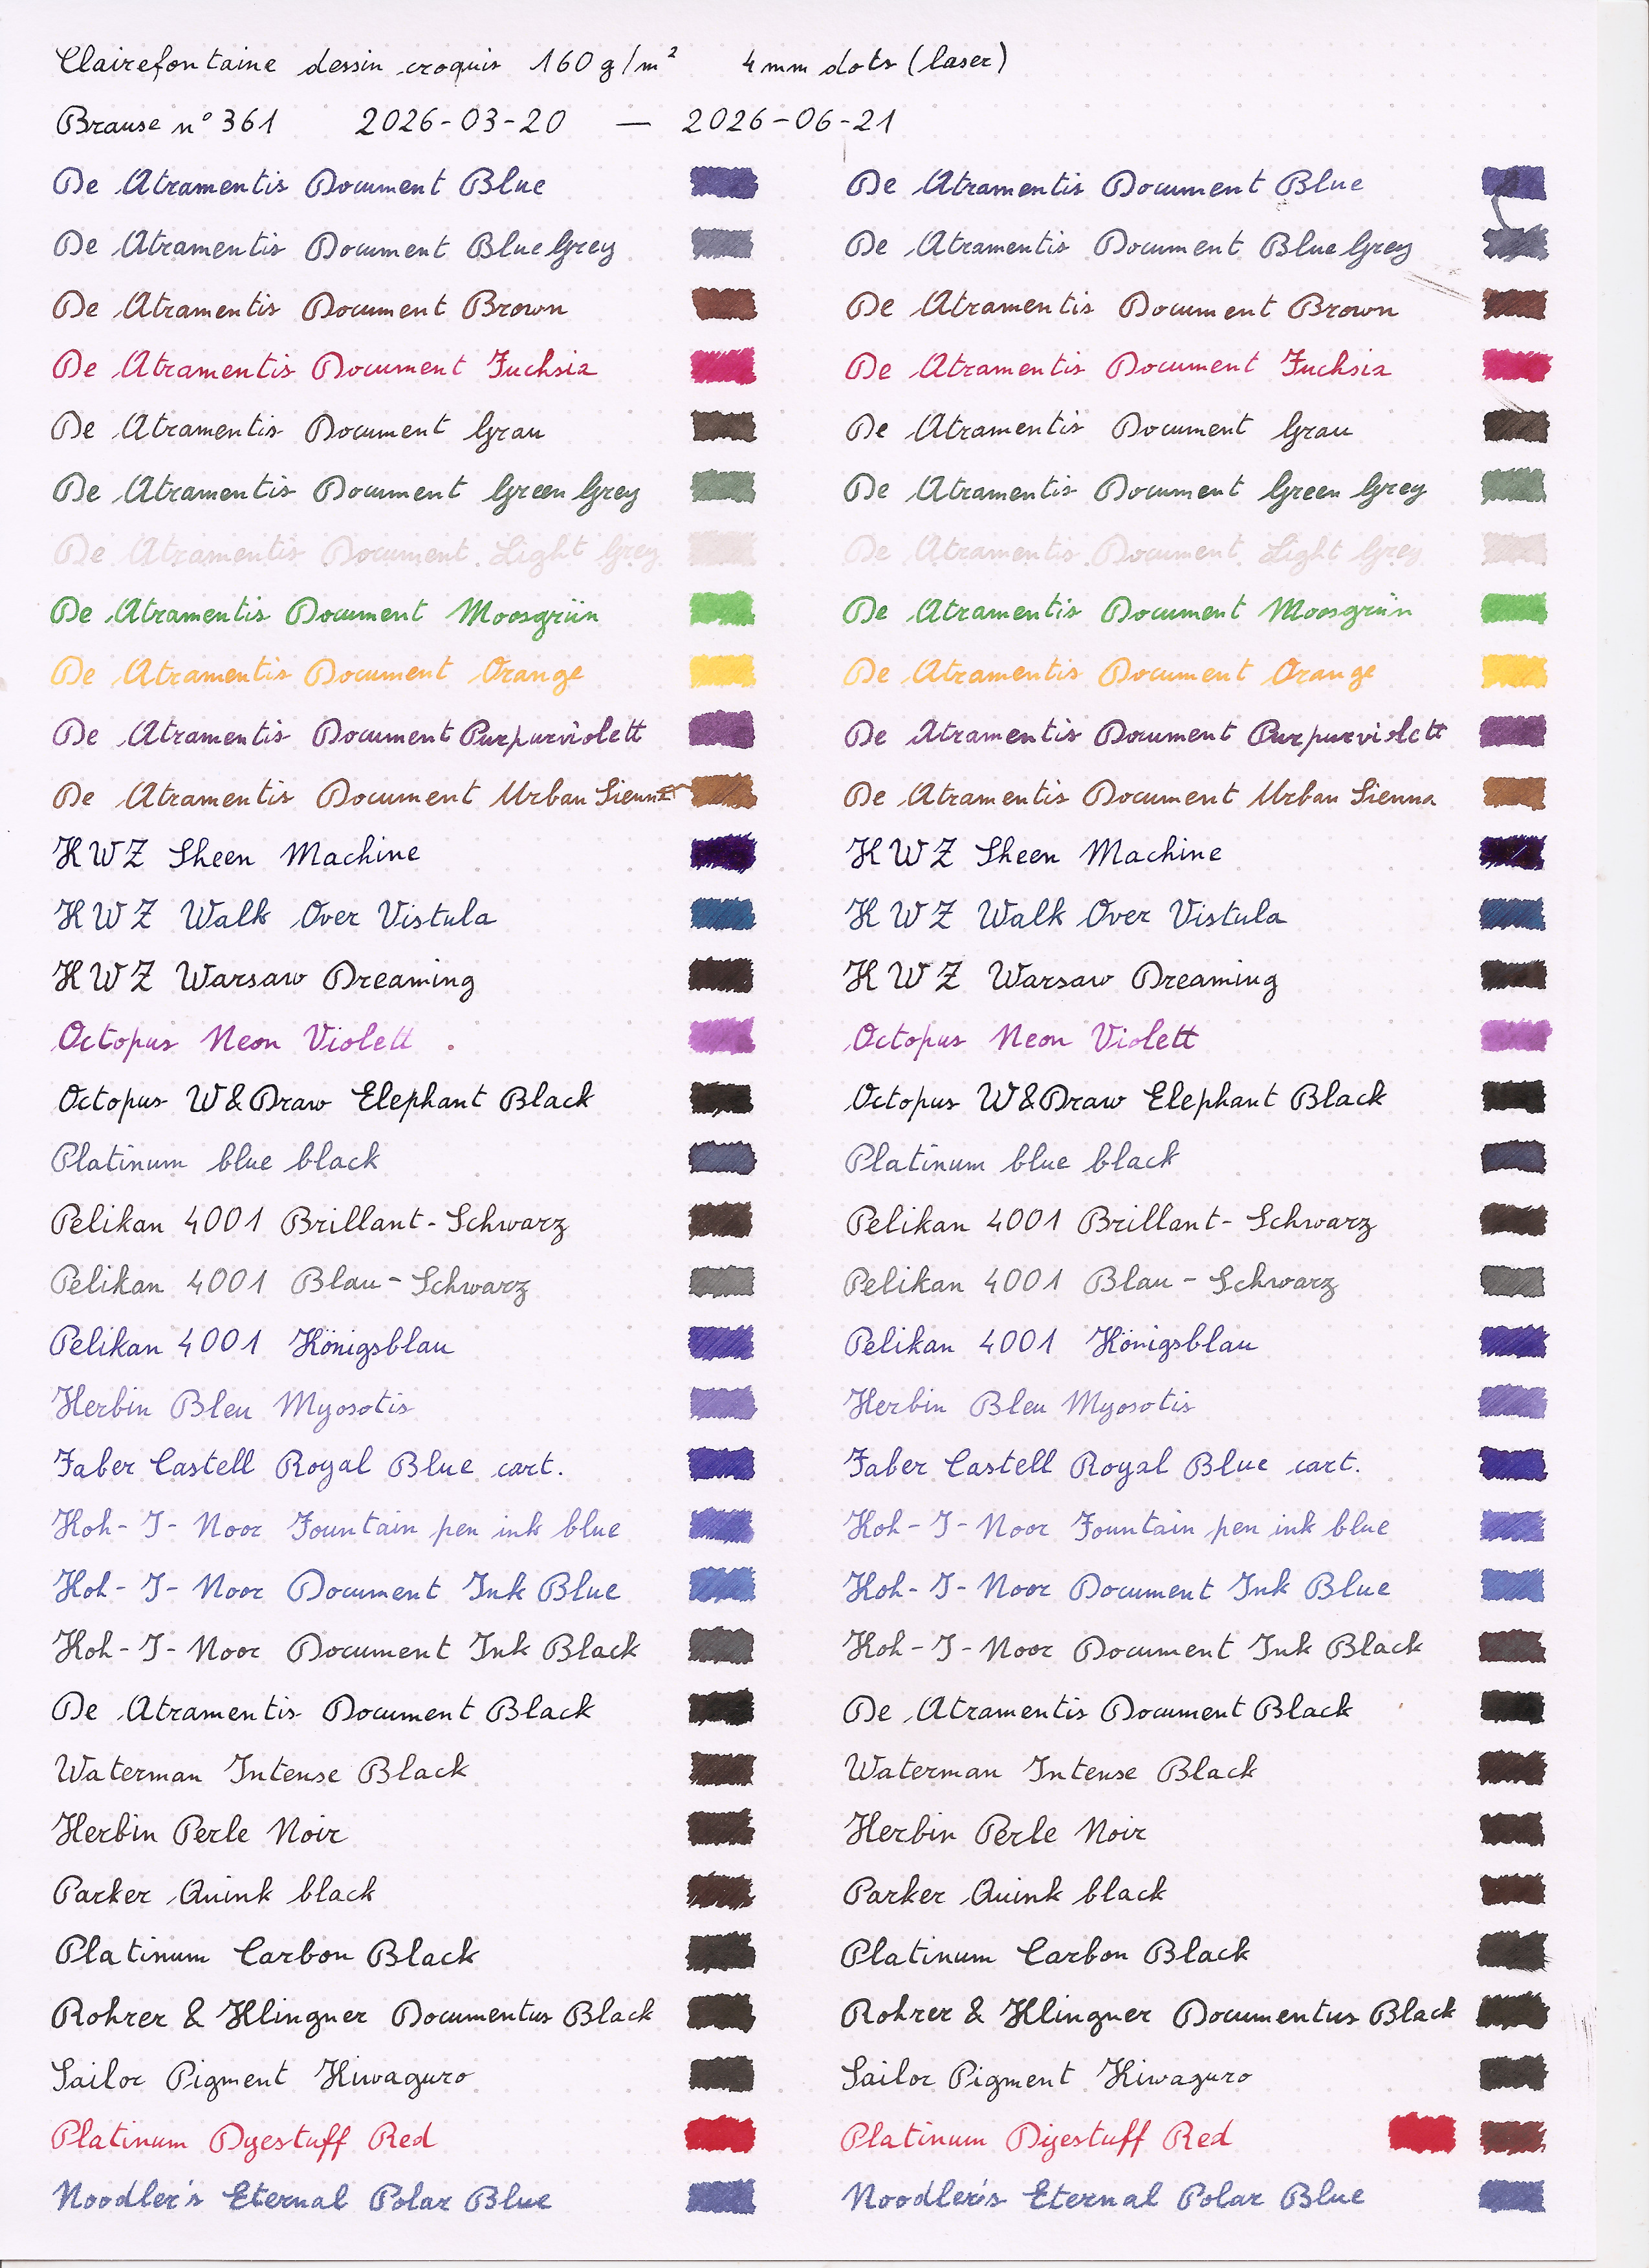 Clairefontaine dessin croquis 160 g/m² 4 mm dots (laser)
Brause n° 361 2026-03-20 — 2026-06-21
De Atramentis Document Blue De Atramentis Document Blue
De Atramentis Document Blue Grey De Atramentis Document Blue Grey
De Atramentis Document Brown De Atramentis Document Brown
De Atramentis Document Fuchsia De Atramentis Document Fuchsia
De Atramentis Document Grau De Atramentis Document Grau
De Atramentis Document Green Grey De Atramentis Document Green Grey
De Atramentis Document Light Grey De Atramentis Document Light Grey
De Atramentis Document Moosgrün De Atramentis Document Moosgrün
De Atramentis Document Orange De Atramentis Document Orange
De Atramentis Document Purpurviolett De Atramentis Document Purpurviolett
De Atramentis Document Urban Sienna De Atramentis Document Urban Sienna
KWZ Sheen Machine KWZ Sheen Machine
KWZ Walk Over Vistula KWZ Walk Over Vistula
KWZ Warsaw Dreaming KWZ Warsaw Dreaming
Octopus Neon Violett Octopus Neon Violett
Octopus W&Draw Elephant Black Octopus W&Draw Elephant Black
Platinum blue black Platinum blue black
Pelikan 4001 Brillant-Schwarz Pelikan 4001 Brillant-Schwarz
Pelikan 4001 Blau-Schwarz Pelikan 4001 Blau-Schwarz
Pelikan 4001 Königsblau Pelikan 4001 Königsblau
Herbin Bleu Myosotis Herbin Bleu Myosotis
Faber Castell Royal Blue cart. Faber Castell Royal Blue cart.
Koh-I-Noor Fountain pen ink blue Koh-I-Noor Fountain pen ink blue
Koh-I-Noor Document Ink Blue Koh-I-Noor Document Ink Blue
Koh-I-Noor Document Ink Black Koh-I-Noor Document Ink Black
De Atramentis Document Black De Atramentis Document Black
Waterman Intense Black Waterman Intense Black
Herbin Perle Noir Herbin Perle Noir
Parker Quink black Parker Quink black
Platinum Carbon Black Platinum Carbon Black
Rohrer & Klingner Documentus Black Rohrer & Klingner Documentus Black
Sailor Pigment Kiwaguro Sailor Pigment Kiwaguro
Platinum Dyestuff Red Platinum Dyestuff Red
Noodler's Eternal Polar Blue Noodler's Eternal Polar Blue